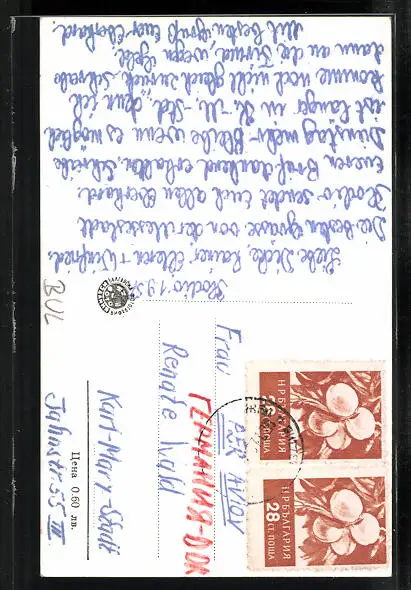 Plovdiv 19.
Liebe Dicke, Rainer Eltern + Winfried.
Die besten Grüsse von der Messestadt
sendet Euch allen Eberhard.
Eueren Brief dankend erhalten, schreibe
Dienstag mehr. Bleibe wenn es möglich
ist länger in
komme noch nicht gleich zurück, schreibe
dann an die Firma wegen
Mit besten Gruß Euer Eberhard.
BUL
Frau
PAR AVION
Renate Wald
ГЕРМАНИЯ-DDR
Karl-Marx-Stadt
Цена 0.60 лв.
Juliusstr. 55 III
НР БЪЛГАРИЯ
ПОЩА
НР БЪЛГАРИЯ
28 СТ. ПОЩА